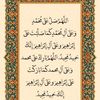 اللَّهُمَّ صَلِّ عَلَى مُحَمَّدٍ
وَعَلَى آلِ مُحَمَّدٍ كَمَا صَلَّيْتَ عَلَى
إِبْرَاهِيمَ وَعَلَى آلِ إِبْرَاهِيمَ إِنَّكَ
حَمِيدٌ مَجِيدٌ اللَّهُمَّ بَارِكْ عَلَى مُحَمَّدٍ
وَعَلَى آلِ مُحَمَّدٍ كَمَا بَارَكْتَ
عَلَى إِبْرَاهِيمَ وَعَلَى آلِ إِبْرَاهِيمَ
إِنَّكَ حَمِيدٌ مَجِيدٌ